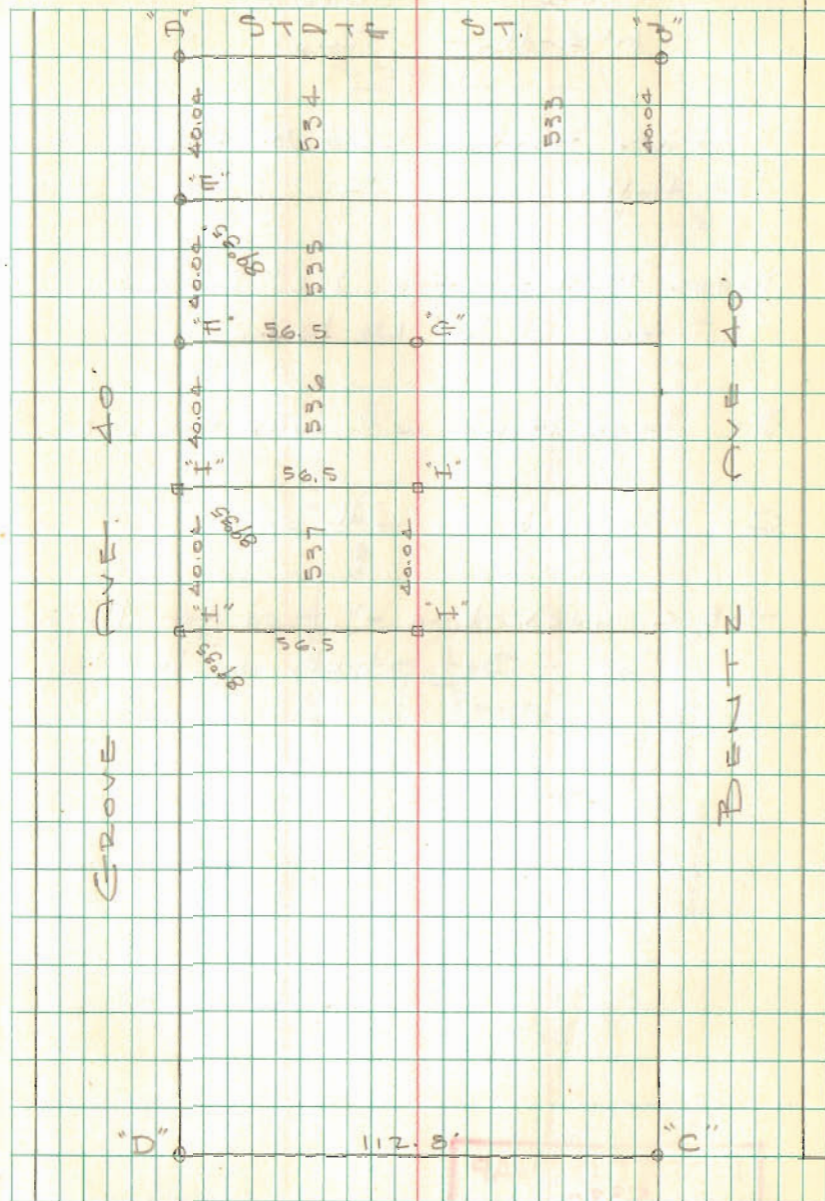 STATE ST.
"J"
40.04
534
533
40.04
"E"
40.04
89°35
535
56.5
"G"
40.04
536
"I"
56.5
"I"
89°35
40.04
537
40.04
"I"
56.5
"I"
89°35
GROVE AVE. 40'
BENTZ AVE 40'
"D"
112.8'
"C"